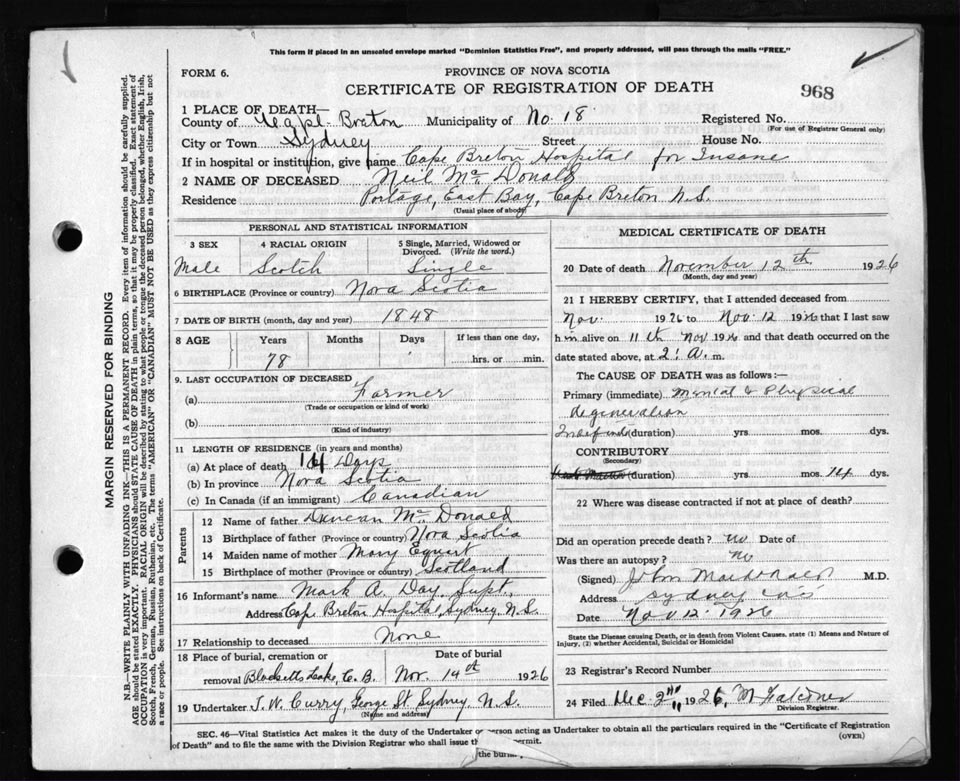 This form if placed in an unsealed envelope marked "Dominion Statistics Free", and properly addressed, will pass through the mails "FREE."
FORM 6.
PROVINCE OF NOVA SCOTIA
CERTIFICATE OF REGISTRATION OF DEATH
968
1 PLACE OF DEATH—
County of Cape Breton Municipality of No. 18 Registered No.
(For use of Registrar General only)
City or Town Sydney Street House No.
If in hospital or institution, give name Cape Breton Hospital for Insane
2 NAME OF DECEASED Neil Mc Donald
Residence Portage, East Bay, Cape Breton N.S.
(Usual place of abode)
PERSONAL AND STATISTICAL INFORMATION
3 SEX 4 RACIAL ORIGIN 5 Single, Married, Widowed or Divorced. (Write the word.)
Male Scotch Single
6 BIRTHPLACE (Province or country) Nova Scotia
7 DATE OF BIRTH (month, day and year) 1848
8 AGE Years Months Days If less than one day,
78 hrs. or min.
9. LAST OCCUPATION OF DECEASED
(a) Farmer
(Trade or occupation or kind of work)
(b)
(Kind of industry)
11 LENGTH OF RESIDENCE (in years and months)
(a) At place of death 14 Days
(b) In province Nova Scotia
(c) In Canada (if an immigrant) Canadian
Parents
12 Name of father Duncan Mc Donald
13 Birthplace of father (Province or country) Nova Scotia
14 Maiden name of mother Mary
15 Birthplace of mother (Province or country) Scotland
16 Informant's name Mark A. Day, Supt.
Address Cape Breton Hospital, Sydney, N.S.
17 Relationship to deceased None
18 Place of burial, cremation or removal Date of burial
Blacketts Lake, C.B. Nov. 14th 1926
19 Undertaker T. W. Curry, George St. Sydney. N.S.
(Name and address)
MEDICAL CERTIFICATE OF DEATH
20 Date of death November 12th 1926
(Month, day and year)
21 I HEREBY CERTIFY, that I attended deceased from
Nov. 1926 to Nov. 12 1926 that I last saw
him alive on 11th Nov 1926 and that death occurred on the
date stated above, at 2. A. m.
The CAUSE OF DEATH was as follows:—
Primary (immediate) Mental & Physical
degeneration
(duration) yrs mos. dys.
CONTRIBUTORY
(Secondary)
(duration) yrs mos. 14 dys.
22 Where was disease contracted if not at place of death?
Did an operation precede death? No Date of
Was there an autopsy? No
(Signed) John Macdonald M.D.
Address Sydney
Date Nov. 12. 1926
State the Disease causing Death, or in death from Violent Causes, state (1) Means and Nature of Injury, (2) whether Accidental, Suicidal or Homicidal
23 Registrar's Record Number
24 Filed Dec 2nd 1926, M Falconer
Division Registrar.
SEC. 46—Vital Statistics Act makes it the duty of the Undertaker or person acting as Undertaker to obtain all the particulars required in the "Certificate of Registration
of Death" and to file the same with the Division Registrar who shall issue the burial permit.
(OVER)
MARGIN RESERVED FOR BINDING
N.B.—WRITE PLAINLY WITH UNFADING INK—THIS IS A PERMANENT RECORD. Every item of information should be carefully supplied.
AGE should be stated EXACTLY. PHYSICIANS should STATE CAUSE OF DEATH in plain terms, so that it may be properly classified. Exact statement of
OCCUPATION is very important. RACIAL ORIGIN will be described by stating to what people or tongue the deceased person belonged, whether English, Irish,
Scotch, French, German, Russian, Ruthenian, etc. The terms "AMERICAN" or "CANADIAN" MUST NOT BE USED as they express citizenship but not
a race or people. See instructions on back of Certificate.